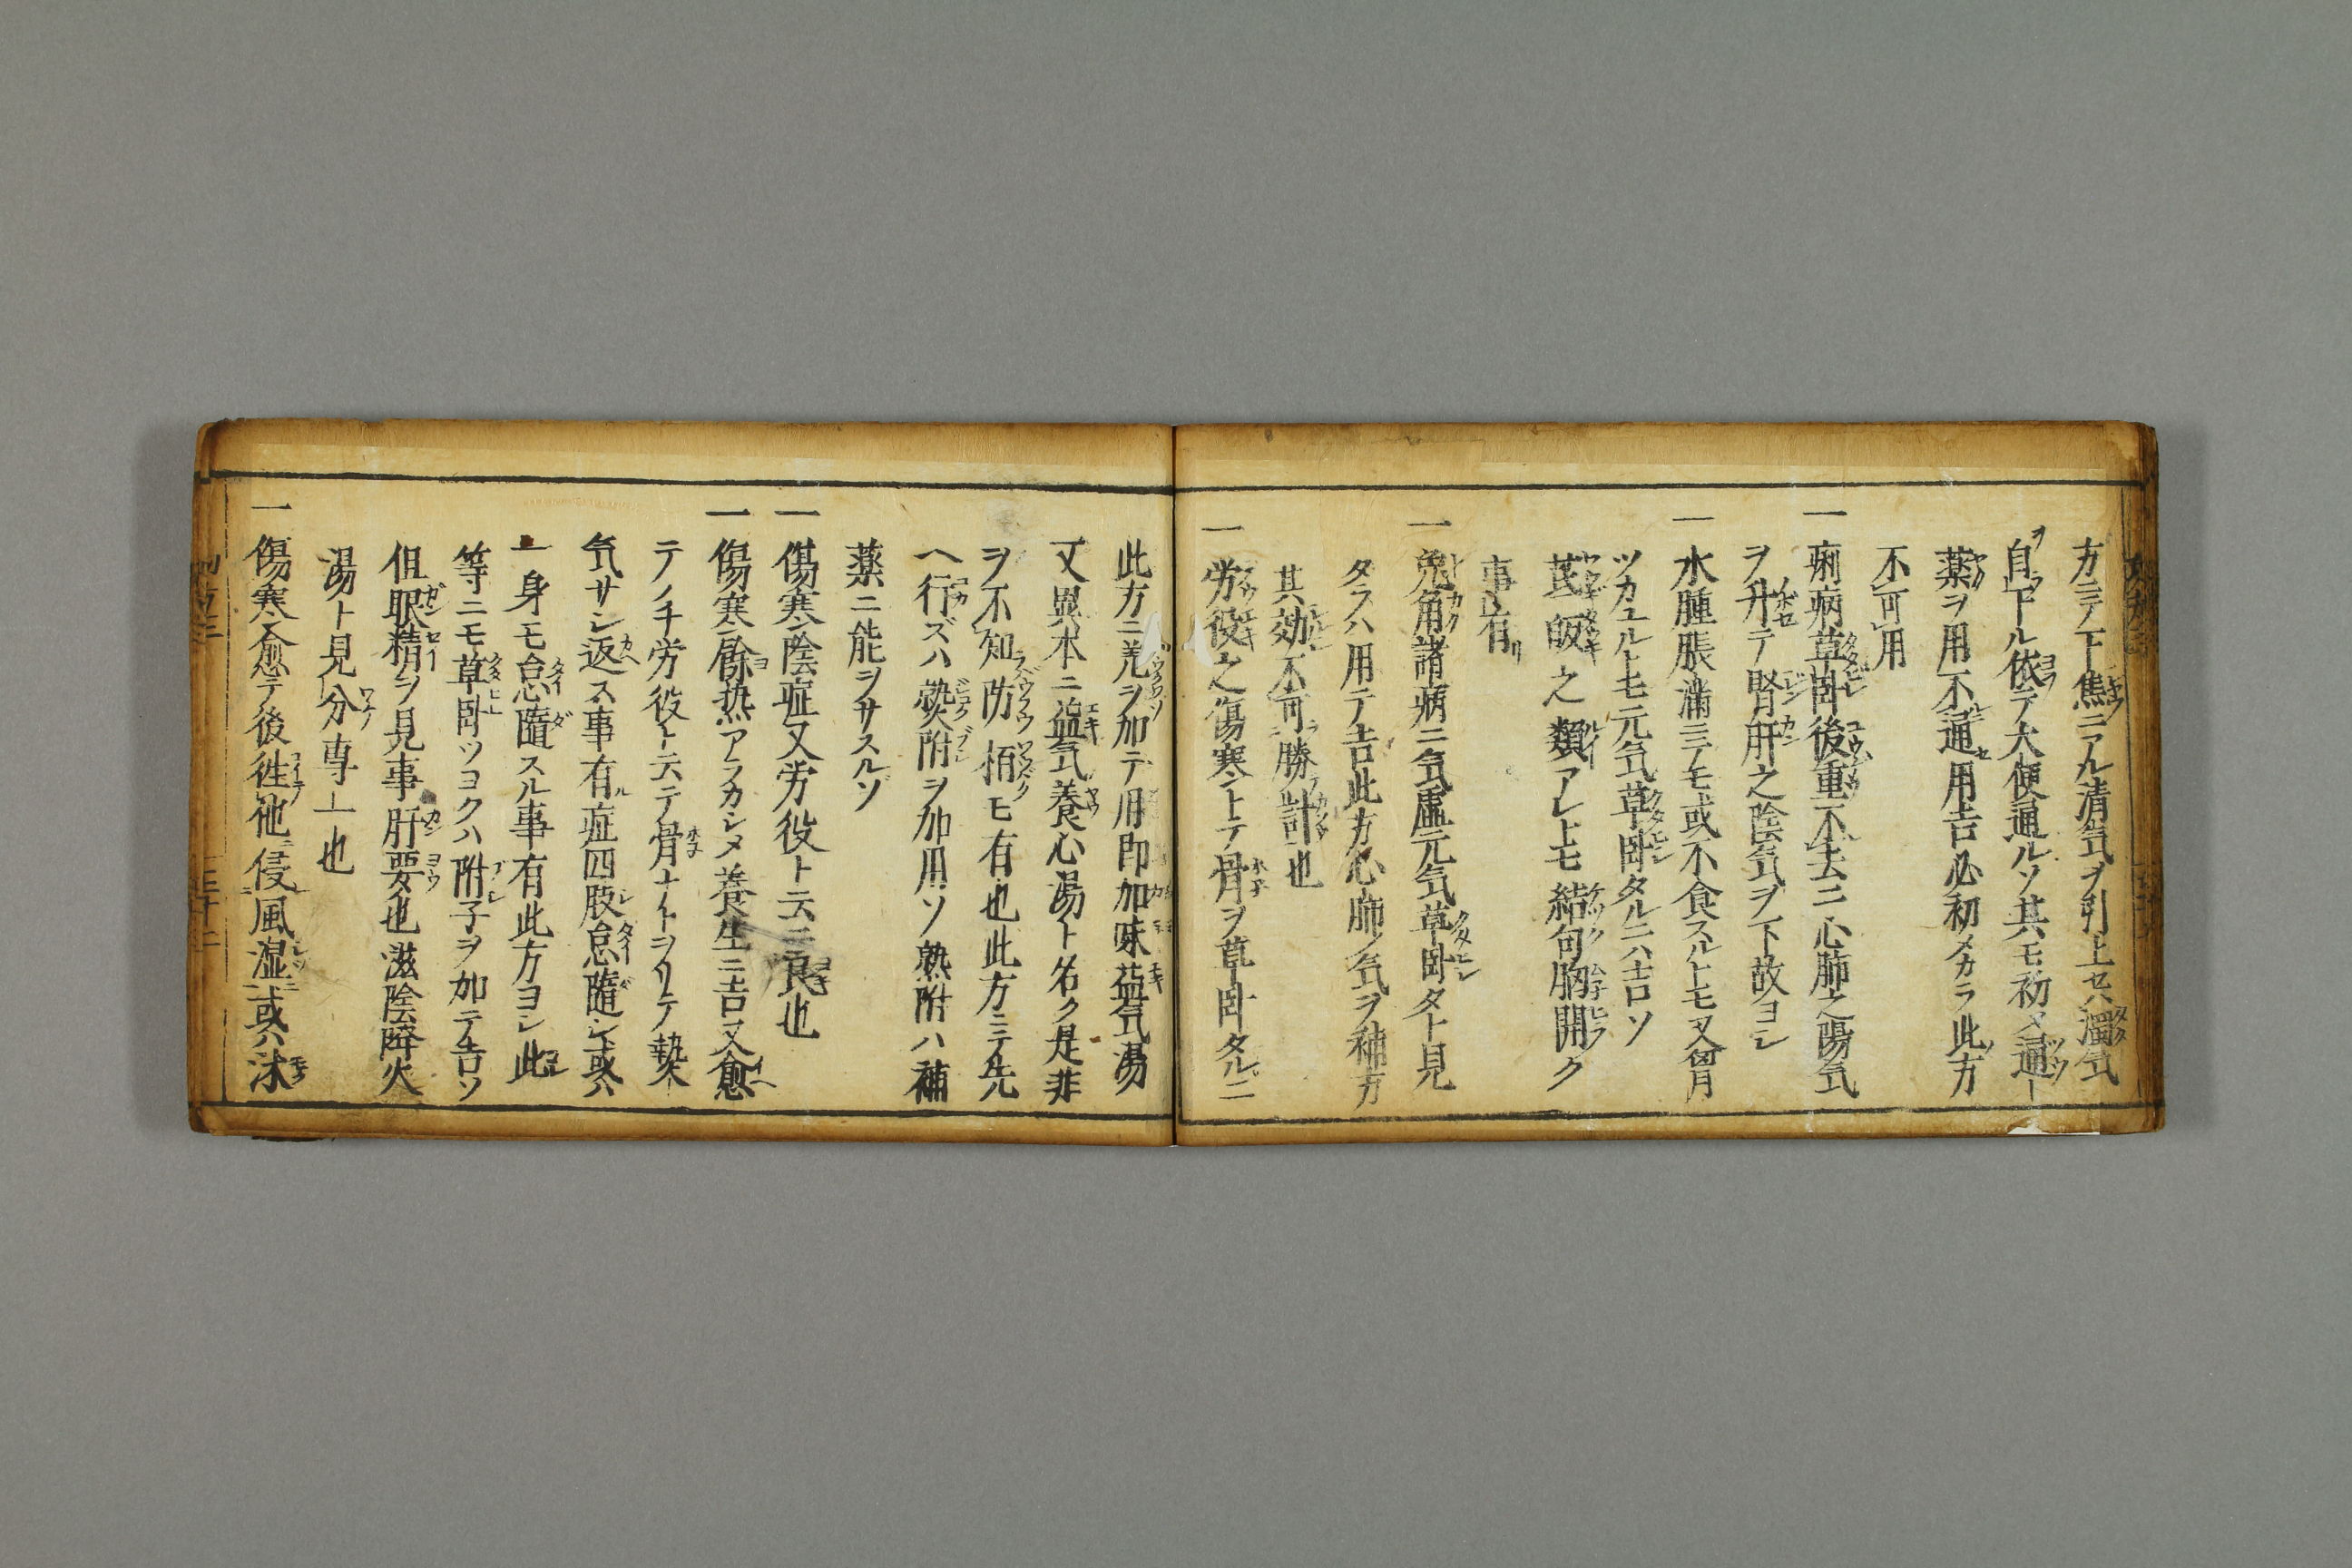 方ニテ下焦ニアル清気ヲ引上セハ濁気
自下ル依テ大便通ルソ其モ初メ通ー
薬ヲ用不通用吉必初メカラ此方
不可用
一痢病草臥後重不去ニ心肺之陽気
ヲ升テ腎肝之陰気ヲ下故ヨシ
一水腫脹滿ニテモ或不食スルトモ又胃
ツカユルトモ元気草臥タルニハ吉ソ
芪 之類アレトモ結句胸開ク
事有
一兎角諸病ニ気虚元気草臥タト見
タラハ用テ吉此方心肺ノ気ヲ補方
其効不可勝計也
一労役之傷寒トテ骨ヲ草臥タルニ
此方ニ羌ヲ加テ用即加味益気湯
又異本ニ益気養心湯ト名ク是非
ヲ不知防栢モ有也此方ニテ先
ヘ行ズハ附ヲ加用ソ熟附ハ補
薬ニ能ヲサスルソ
一傷寒陰症又労役ト云ニ良也
一傷寒餘热アラカシメ養生ニ吉又愈
テノチ労役ト云テ骨ナトヲリテ執
気サシ返ス事有症四股怠隨シ或ハ
一身モ怠隨スル事有此方ヨシ此
等ニモ草臥ツヨクハ附子ヲ加テ吉ソ
但眼精ヲ見事肝要也滋陰降火
湯ト見分専一也
一傷寒愈テ後徃他侵風湿或ハ沐